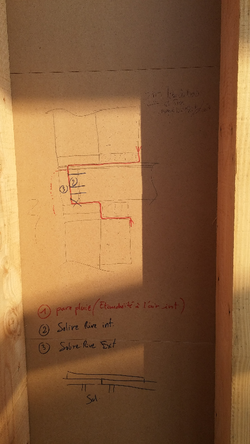 ①
②
① pare pluie (Etanchéité à l'air int)
② Solive Rive int.
③ Solive Rive Ext
Sol